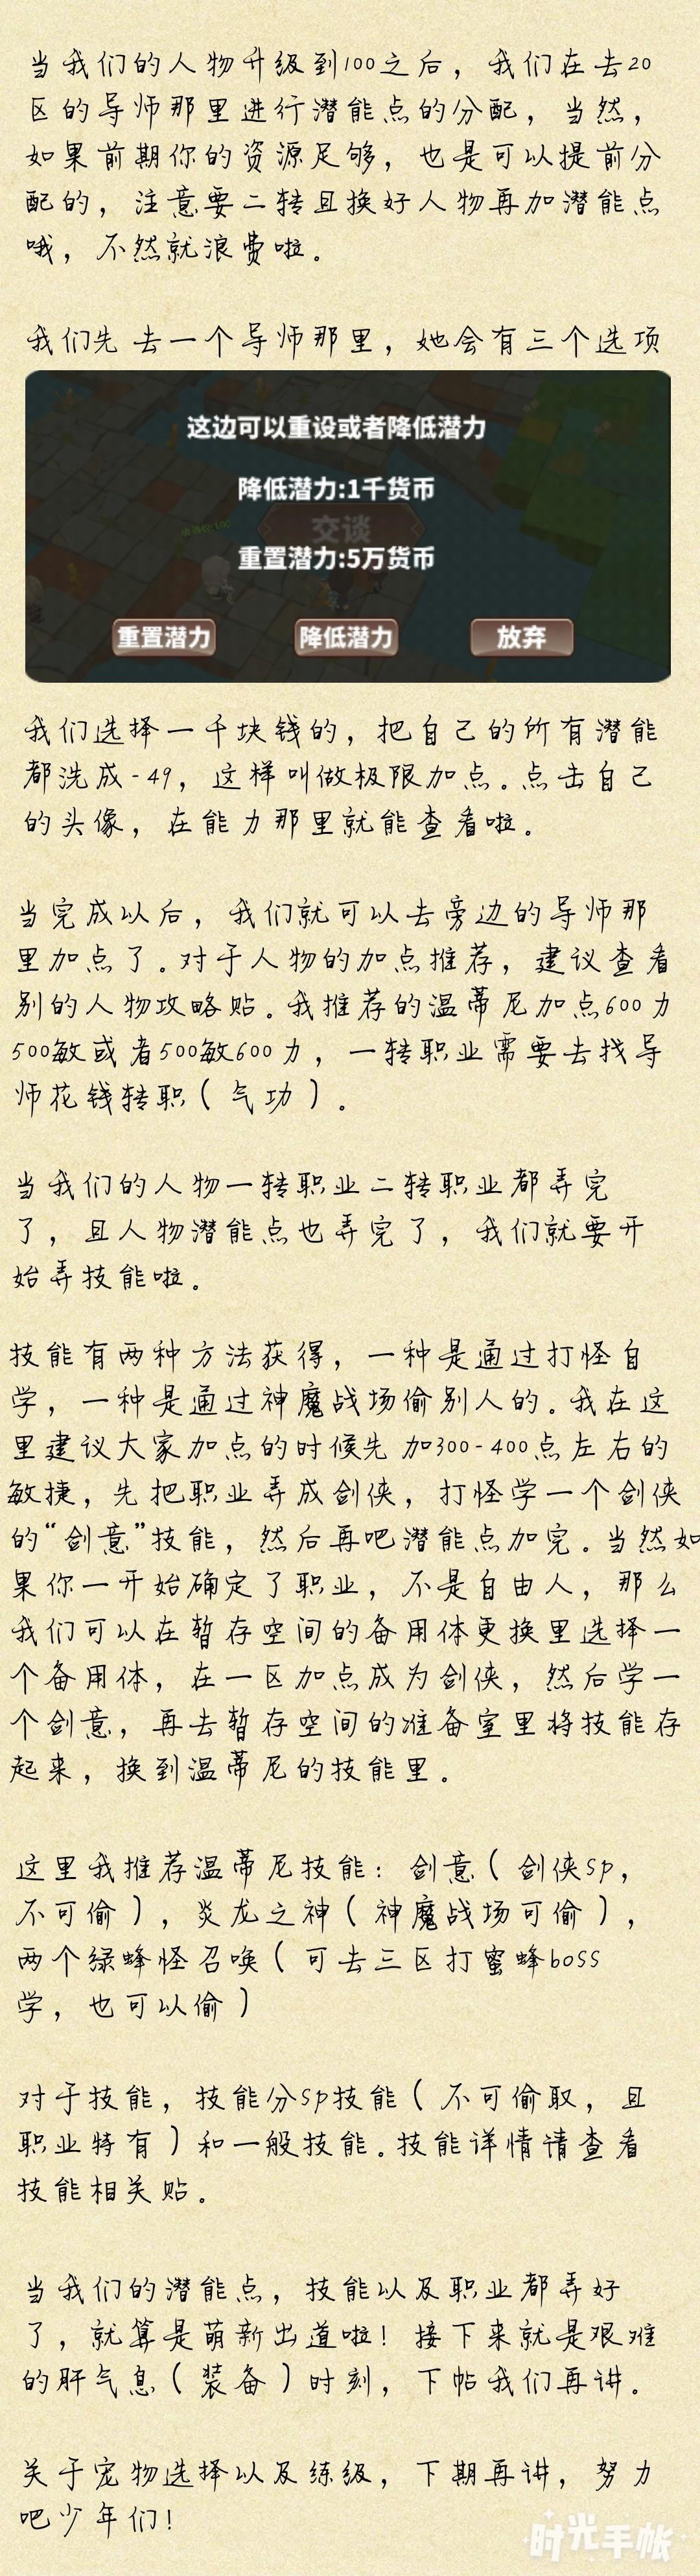 当我们的人物升级到100之后，我们在去20
区的导师那里进行潜能点的分配，当然，
如果前期你的资源足够，也是可以提前分
配的，注意要二转且换好人物再加潜能点
哦，不然就浪费啦。
我们先去一个导师那里，她会有三个选项
这边可以重设或者降低潜力
降低潜力:1千货币
交谈
重置潜力:5万货币
重置潜力 降低潜力 放弃
我们选择一千块钱的，把自己的所有潜能
都洗成-49，这样叫做极限加点。点击自己
的头像，在能力那里就能查看啦。
当完成以后，我们就可以去旁边的导师那
里加点了。对于人物的加点推荐，建议查看
别的人物攻略贴。我推荐的温蒂尼加点600力
500敏或者500敏600力，一转职业需要去找导
师花钱转职（气功）。
当我们的人物一转职业二转职业都弄完
了，且人物潜能点也弄完了，我们就要开
始弄技能啦。
技能有两种方法获得，一种是通过打怪自
学，一种是通过神魔战场偷别人的。我在这
里建议大家加点的时候先加300-400点左右的
敏捷，先把职业弄成剑侠，打怪学一个剑侠
的“剑意”技能，然后再吧潜能点加完。当然如
果你一开始确定了职业，不是自由人，那么
我们可以在暂存空间的备用体更换里选择一
个备用体，在一区加点成为剑侠，然后学一
个剑意，再去暂存空间的准备室里将技能存
起来，换到温蒂尼的技能里。
这里我推荐温蒂尼技能：剑意（剑侠sp，
不可偷），炎龙之神（神魔战场可偷），
两个绿蜂怪召唤（可去三区打蜜蜂boss
学，也可以偷）
对于技能，技能分sp技能（不可偷取，且
职业特有）和一般技能。技能详情请查看
技能相关贴。
当我们的潜能点，技能以及职业都弄好
了，就算是萌新出道啦！接下来就是艰难
的肝气息（装备）时刻，下帖我们再讲。
关于宠物选择以及练级，下期再讲，努力
吧少年们！
时光手帐